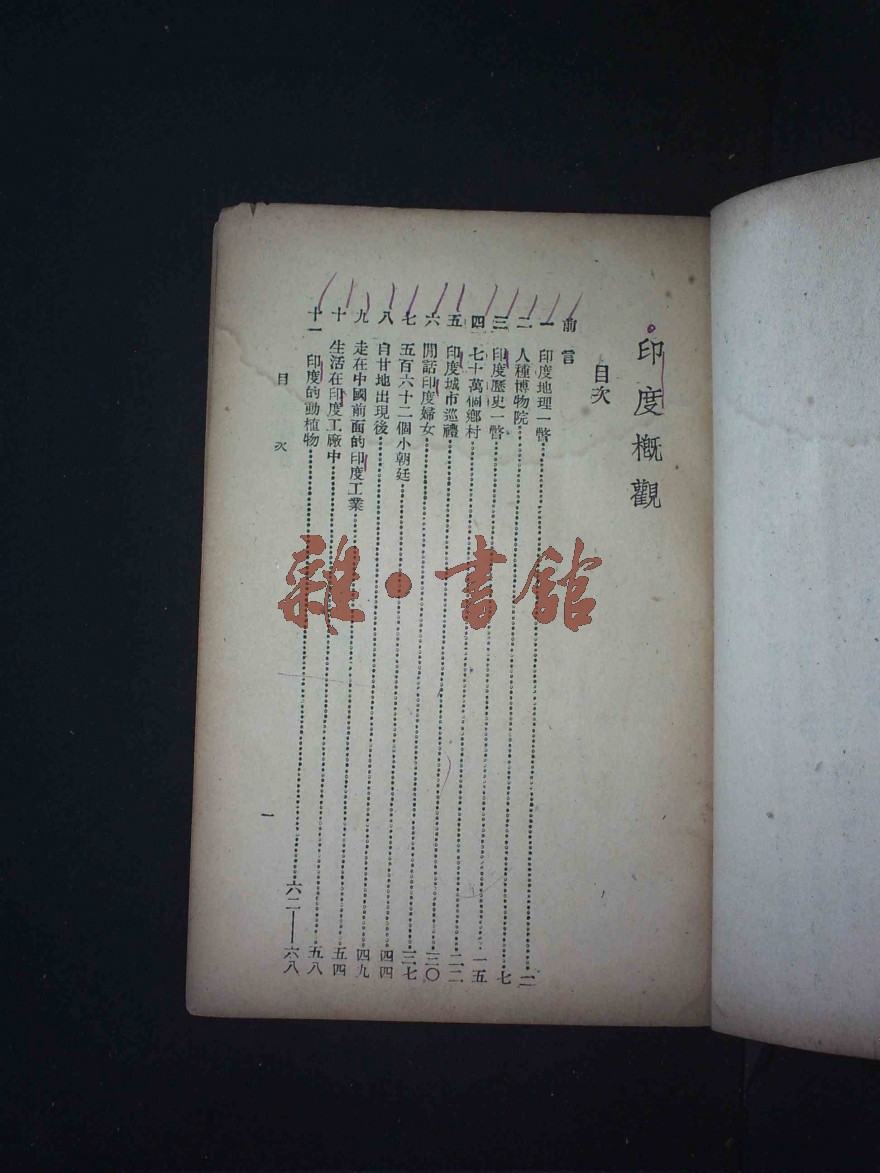 印度概觀
目次
前言
一 印度地理一瞥………二
二 人種博物院………七
三 印度歷史一瞥………一五
四 七十萬個鄉村………二二
五 印度城市巡禮………三〇
六 閒話印度婦女………三七
七 五百六十二個小朝廷………四四
八 自甘地出現後………四九
九 走在中國前面的印度工業………五四
十 生活在印度工廠中………五八
十一 印度的動植物………六二——六八
目次
一
雜·書館